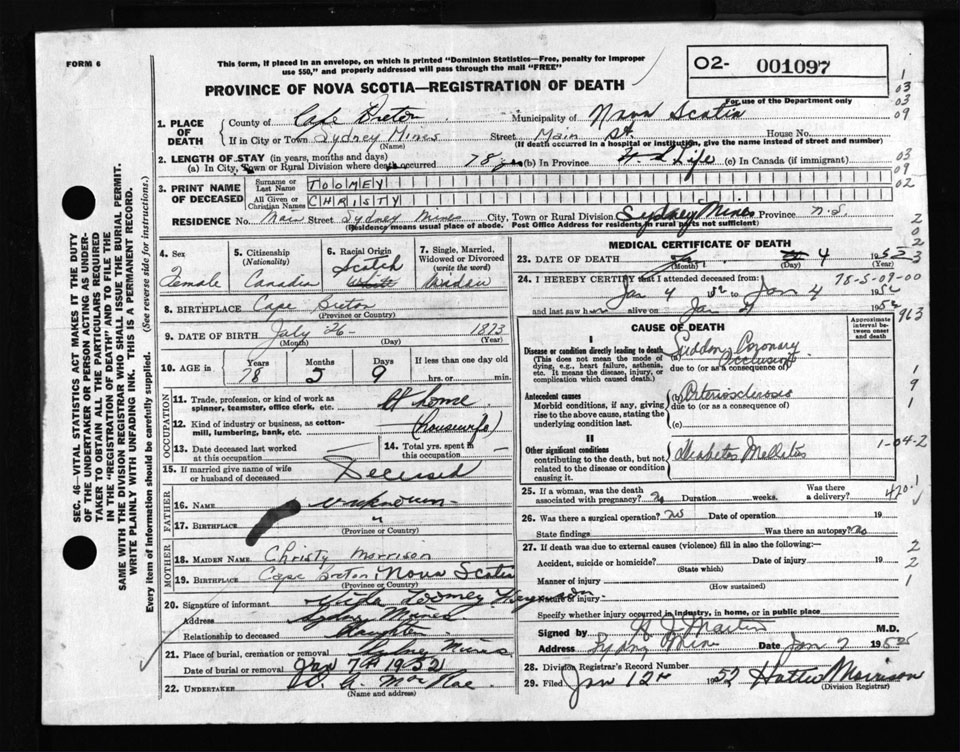 FORM 6
This form, if placed in an envelope, on which is printed "Dominion Statistics—Free, penalty for improper
use $50," and properly addressed will pass through the mail "FREE"
PROVINCE OF NOVA SCOTIA—REGISTRATION OF DEATH
O2- 001097
For use of the Department only
1. PLACE OF DEATH
County of Cape Breton Municipality of Nova Scotia
If in City or Town Sydney Mines Street Main St. House No.
(Name) (If death occurred in a hospital or institution, give the name instead of street and number)
2. LENGTH OF STAY (in years, months and days)
(a) In City, Town or Rural Division where death occurred 78 yrs (b) In Province Life (c) In Canada (if immigrant)
3. PRINT NAME OF DECEASED
Surname or Last Name TOOMEY
All Given or Christian Names CHRISTY
RESIDENCE No. Main Street Sydney Mines City, Town or Rural Division Sydney Mines Province N.S.
(Residence means usual place of abode. Post Office Address for residents in rural parts not sufficient)
4. Sex Female
5. Citizenship (Nationality) Canadian
6. Racial Origin Scotch White
7. Single, Married, Widowed or Divorced (write the word) Widow
8. BIRTHPLACE Cape Breton
(Province or Country)
9. DATE OF BIRTH July 26 1873
(Month) (Day) (Year)
10. AGE Years Months Days If less than one day old
78 5 9 hrs. or min.
OCCUPATION
11. Trade, profession, or kind of work as spinner, teamster, office clerk, etc. At home
12. Kind of industry or business, as cotton-mill, lumbering, bank, etc. (housewife)
13. Date deceased last worked at this occupation
14. Total yrs. spent in this occupation
15. If married give name of wife or husband of deceased Deceased
FATHER
16. NAME unknown
17. BIRTHPLACE "
(Province or Country)
MOTHER
18. MAIDEN NAME Christy Morrison
19. BIRTHPLACE Cape Breton, Nova Scotia
(Province or Country)
20. Signature of informant Toomey
Address Sydney Mines
Relationship to deceased Daughter
21. Place of burial, cremation or removal Sydney Mines
Date of burial or removal Jan 7th 1952
22. UNDERTAKER MacRae
(Name and address)
MEDICAL CERTIFICATE OF DEATH
23. DATE OF DEATH Jan. 4 1952
(Month) (Day)
24. I HEREBY CERTIFY that I attended deceased from: 78-5-09-00
Jan 4 1952 to Jan 4 1952
and last saw h alive on Jan 4 1952
CAUSE OF DEATH
Approximate interval between onset and death
I
Disease or condition directly leading to death (a) Sudden Coronary Occlusion
(This does not mean the mode of dying, e.g., heart failure, asthenia, etc. It means the disease, injury, or complication which caused death.)
due to (or as a consequence of)
Antecedent causes (b) Arteriosclerosis
Morbid conditions, if any, giving rise to the above cause, stating the underlying condition last.
due to (or as a consequence of)
(c)
II
Other significant conditions Diabetes Mellitus
contributing to the death, but not related to the disease or condition causing it.
1-04-2
25. If a woman, was the death associated with pregnancy? No Duration weeks. Was there a delivery? 420.1
26. Was there a surgical operation? No Date of operation 19
State findings Was there an autopsy? No
27. If death was due to external causes (violence) fill in also the following:—
Accident, suicide or homicide? Date of injury 19
(State which)
Manner of injury
(How sustained)
Nature of injury
Specify whether injury occurred in industry, in home, or in public place
Signed by Martin M.D.
Address Sydney Mines Date Jan 7 1952
28. Division Registrar's Record Number
29. Filed Jan 12 1952 Hattie Morrison
(Division Registrar)
SEC. 46—VITAL STATISTICS ACT MAKES IT THE DUTY
OF THE UNDERTAKER OR PERSON ACTING AS UNDER-
TAKER TO OBTAIN ALL THE PARTICULARS REQUIRED
IN THE "REGISTRATION OF DEATH" AND TO FILE THE
SAME WITH THE DIVISION REGISTRAR WHO SHALL ISSUE THE BURIAL PERMIT.
WRITE PLAINLY WITH UNFADING INK. THIS IS A PERMANENT RECORD.
Every item of information should be carefully supplied. (See reverse side for instructions.)
1
03
03
09
03
09
02
2
0
2
3
963
1
9
1
2
2
1